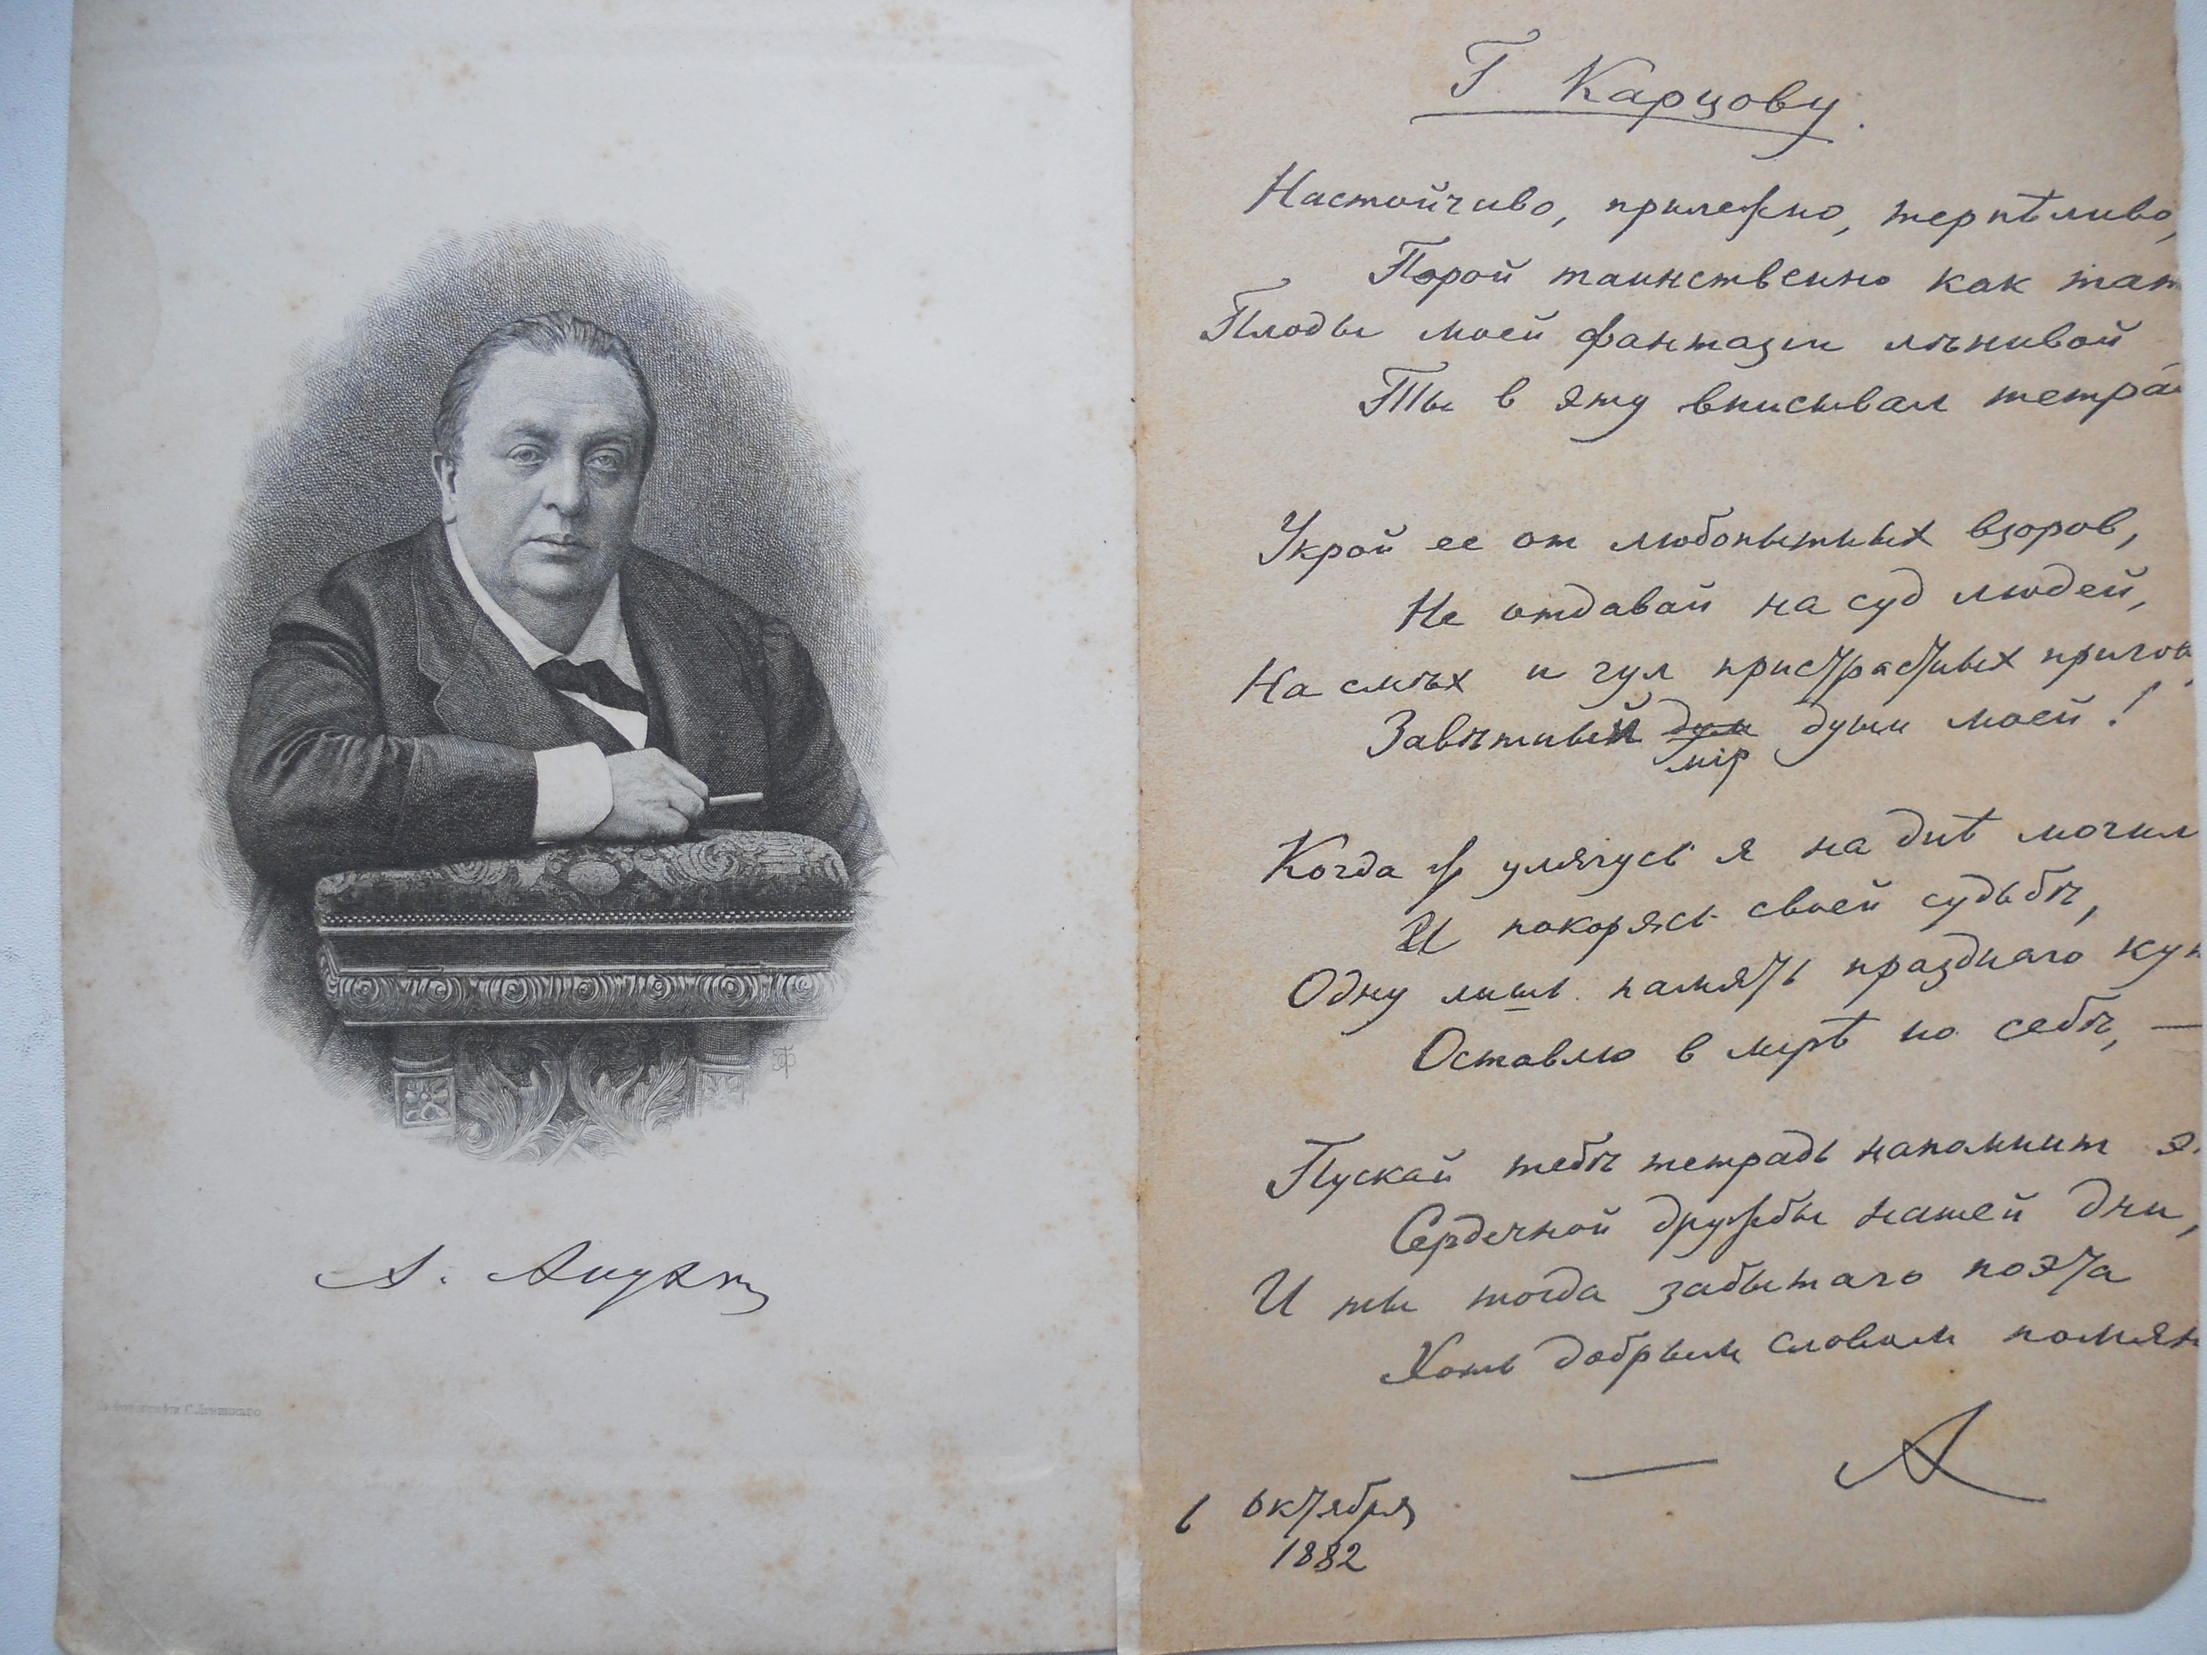 А. Апухтин
С. Левицкаго
Г. Карцову.
Настойчиво, прилежно, терпѣливо,
Порой таинственно как тат
Плоды моей фантазіи лѣнивой
Ты в эту вписывал тетра
Укрой ее от любопытных взоров,
Не отдавай на суд людей,
На смѣх и гул пристрастных пригов
Завѣтный дум душа моей!
мір
Когда ж улягусь я на днѣ могил
И покорясь своей судьбѣ,
Одну лишь память празднаго кут
Оставлю в мірѣ по себѣ, —
Пускай тебѣ тетрадь напомнит э
Сердечной дружбы нашей дни,
И ты тогда забытаго поэта
Хоть добрым словом помян
— А
6 октября
1882